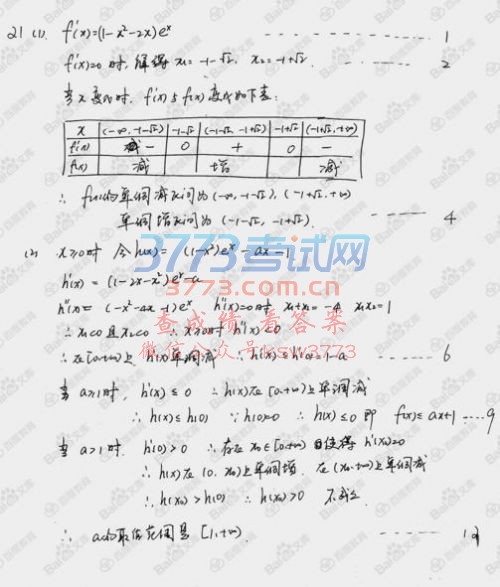 21 (1) f'(x)=(1-x²-2x)eˣ ------ 1
f'(x)=0时,解得 x₁=-1-√2, x₂=-1+√2. ------ 2
当x变化时, f'(x)与f(x)变化如下表:
x (-∞,-1-√2) -1-√2 (-1-√2,-1+√2) -1+√2 (-1+√2,+∞)
f'(x) - 0 + 0 -
f(x) 减 增 减
∴ f(x)的单调减区间为(-∞,-1-√2),(-1+√2,+∞)
单调增区间为(-1-√2,-1+√2). ------ 4
(2) x≥0时 令h(x)= (1-x²)eˣ-ax-1
3773考试网
h'(x)= (1-2x-x²)eˣ-a
3773.com.cn
h''(x)= (-x²-4x-1)eˣ h''(x)=0时 x₁+x₂=-4 x₁x₂=1
查成绩·看答案
∴ x₁<0且x₂<0 ∴ x≥0时 h''(x)<0
微信公众号ksw3773
∴在[0,+∞)上 h'(x)单调减 ∴ h'(x)≤h'(0)=1-a ------ 6
当a≥1时, h'(x)≤0 ∴h(x)在[0,+∞)上单调减
∴ h(x)≤h(0) ∵h(0)=0 ∴ h(x)≤0 即 f(x)≤ax+1 ----9
当a>1时. h'(0)>0 ∴存在x₀∈[0,+∞) 使得 h'(x₀)=0
∴ h(x)在(0,x₀)上单调增. 在(x₀,+∞)上单调减
∴ h(x₀)>h(0) ∴ h(x₀)>0 不成立
∴ a的取值范围是[1,+∞). ------ 12